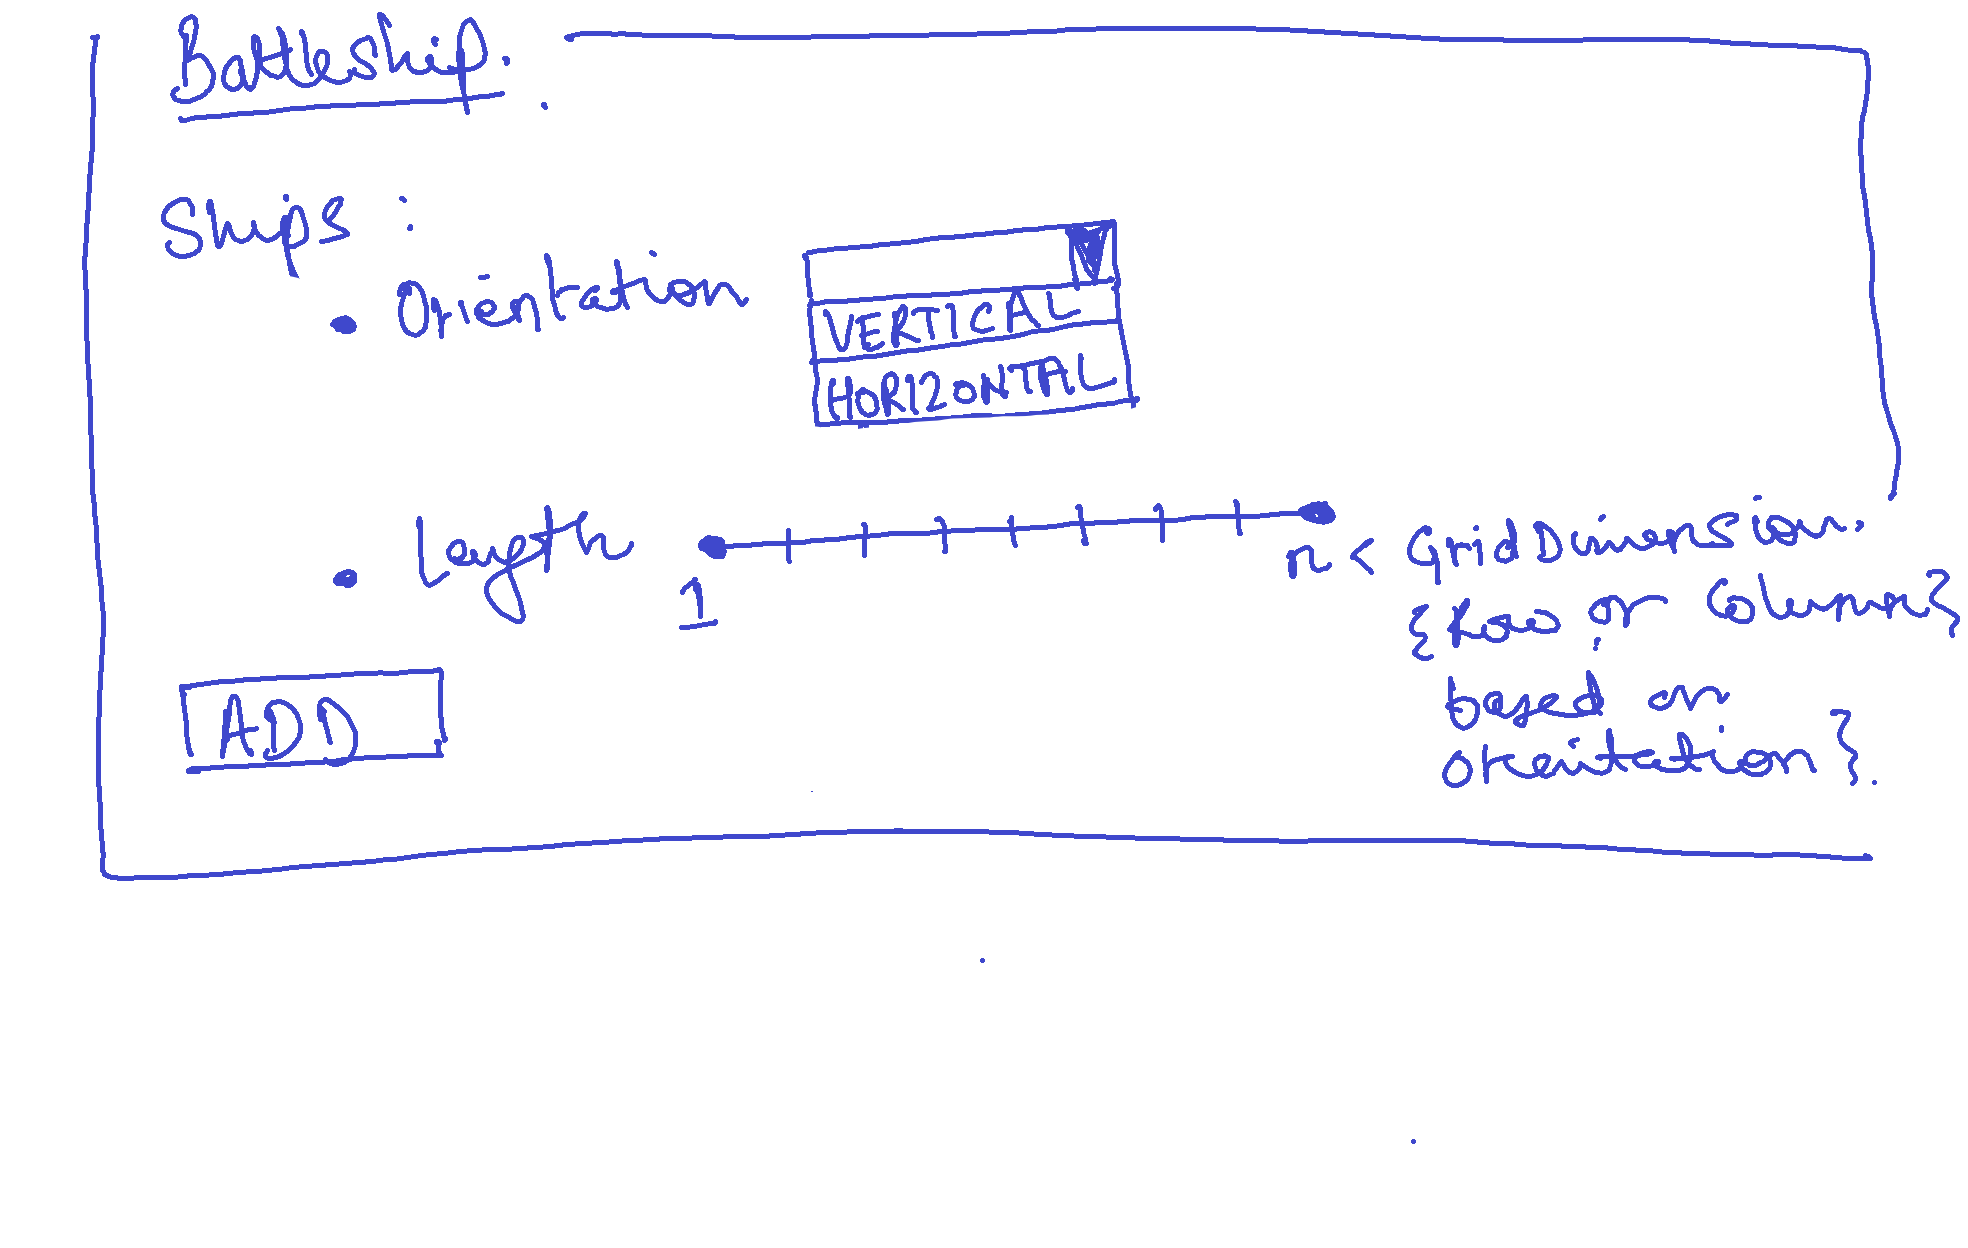 Battleship.
Ships :
• Orientation
VERTICAL
HORIZONTAL
• Length
1
n < GridDimension.
{Row or Column}
based on
orientation}.
ADD